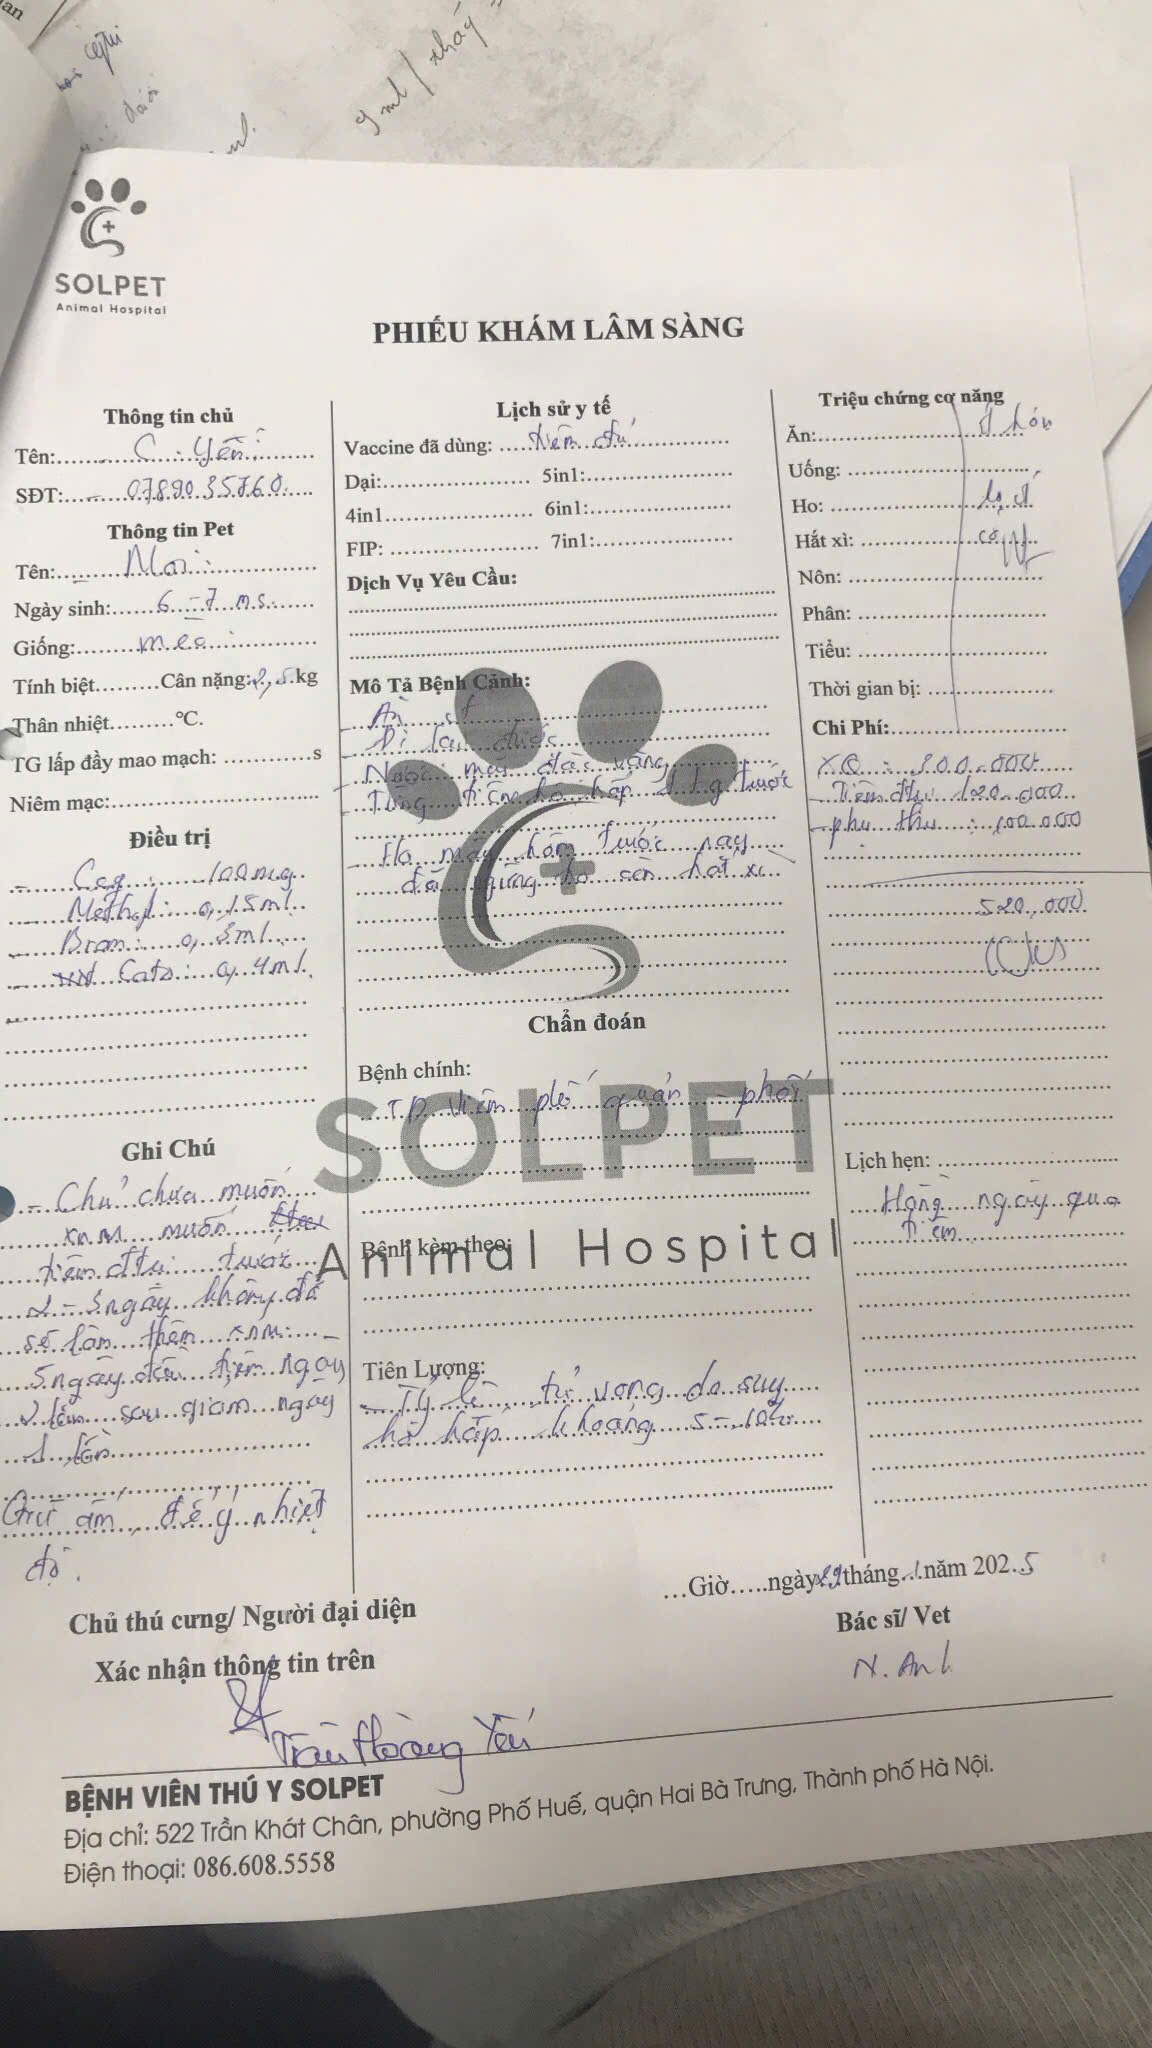 9ml/
SOLPET
Animal Hospital
PHIẾU KHÁM LÂM SÀNG
Thông tin chủ
Tên: C. Yến
SĐT: 0789035760
Thông tin Pet
Tên:
Ngày sinh: 6-7 ms
Giống: mèo
Tính biệt Cân nặng: kg
Thân nhiệt °C.
TG lấp đầy mao mạch: s
Niêm mạc:
Điều trị
- Ceq: 100mg
- Methyl: 0,15ml
- Brom: 0,3ml
- Cato: 0,4ml
Ghi Chú
- Chủ chưa muốn
xnm muốn
tiêm đtrị trước
2-3 ngày không đỡ
sẽ làm thêm xnm
5 ngày đầu tiêm ngày
2 lần sau giảm ngày
1 lần
Giữ ấm, để ý nhiệt
độ.
Lịch sử y tế
Vaccine đã dùng: tiêm đủ
Dại: 5in1:
4in1 6in1:
FIP: 7in1:
Dịch Vụ Yêu Cầu:
Mô Tả Bệnh Cảnh:
- Ăn ít
- Đi lại được
- Nước mắt đục vàng
Từng tiêm hô hấp 1 tg trước
- Ho mấy hôm trước nay
đã ngừng ho còn hắt xì
Chẩn đoán
Bệnh chính:
TD viêm phế quản - phổi
SOLPET
Animal Hospital
Bệnh kèm theo:
Tiên Lượng:
- Tỷ lệ tử vong do suy
hô hấp khoảng 5-10%
Triệu chứng cơ năng
Ăn: ít hơn
Uống:
Ho: có
Hắt xì: có
Nôn:
Phân:
Tiểu:
Thời gian bị:
Chi Phí:
XQ: 300.000
- Tiêm đtrị 120.000
- phụ thu: 100.000
520.000
Lịch hẹn:
Hàng ngày qua
tiêm
Giờ ngày 29 tháng 1 năm 2025
Chủ thú cưng/ Người đại diện
Xác nhận thông tin trên
Trần Hoàng Yến
Bác sĩ/ Vet
N. Anh
BỆNH VIỆN THÚ Y SOLPET
Địa chỉ: 522 Trần Khát Chân, phường Phố Huế, quận Hai Bà Trưng, Thành phố Hà Nội.
Điện thoại: 086.608.5558